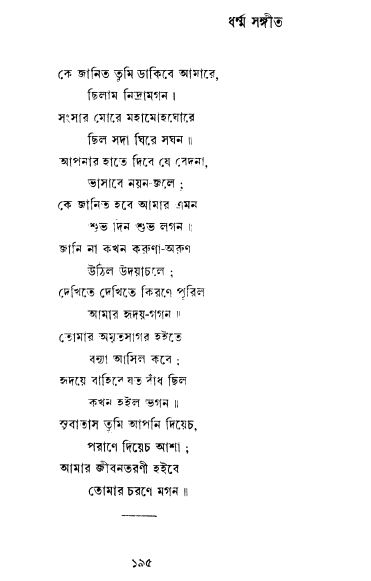 ধর্ম্ম সঙ্গীত
কে জানিত তুমি ডাকিবে আমারে,
ছিলাম নিদ্রামগন।
সংসার মোরে মহামোহঘোরে
ছিল সদা ঘিরে সঘন॥
আপনার হাতে দিবে যে বেদনা,
ভাসাবে নয়ন-জলে;
কে জানিত হবে আমার এমন
শুভ দিন শুভ লগন॥
জানি না কখন করুণা-অরুণ
উঠিল উদয়াচলে;
দেখিতে দেখিতে কিরণে পূরিল
আমার হৃদয়-গগন॥
তোমার অমৃতসাগর হইতে
বন্যা আসিল কবে;
হৃদয়ে বাহিরে যত বাঁধ ছিল
কখন হইল ভগন॥
সুবাতাস তুমি আপনি দিয়েচ,
পরাণে দিয়েচ আশা;
আমার জীবনতরণী হইবে
তোমার চরণে মগন॥
১৯৫